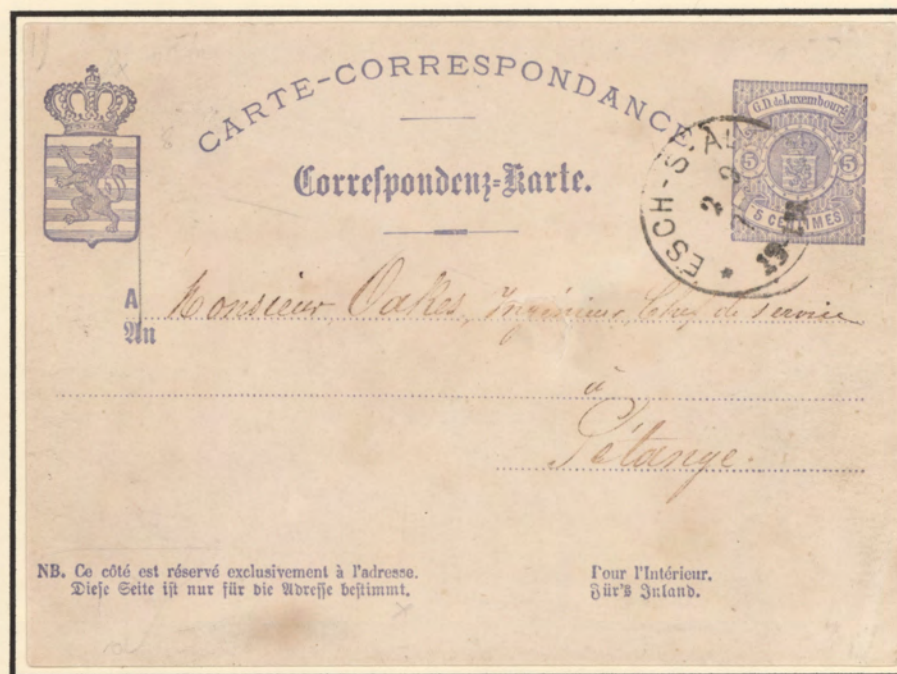 CARTE-CORRESPONDANCE
Correspondenz=Karte.
G.D. de Luxembourg
5 5
5 CENTIMES
ESCH-S
A
Monsieur Oakes, Ingénieur, Chef de service
An
à
Pétange.
NB. Ce côté est réservé exclusivement à l'adresse.
Diese Seite ist nur für die Adresse bestimmt.
Pour l'Intérieur.
Für's Inland.